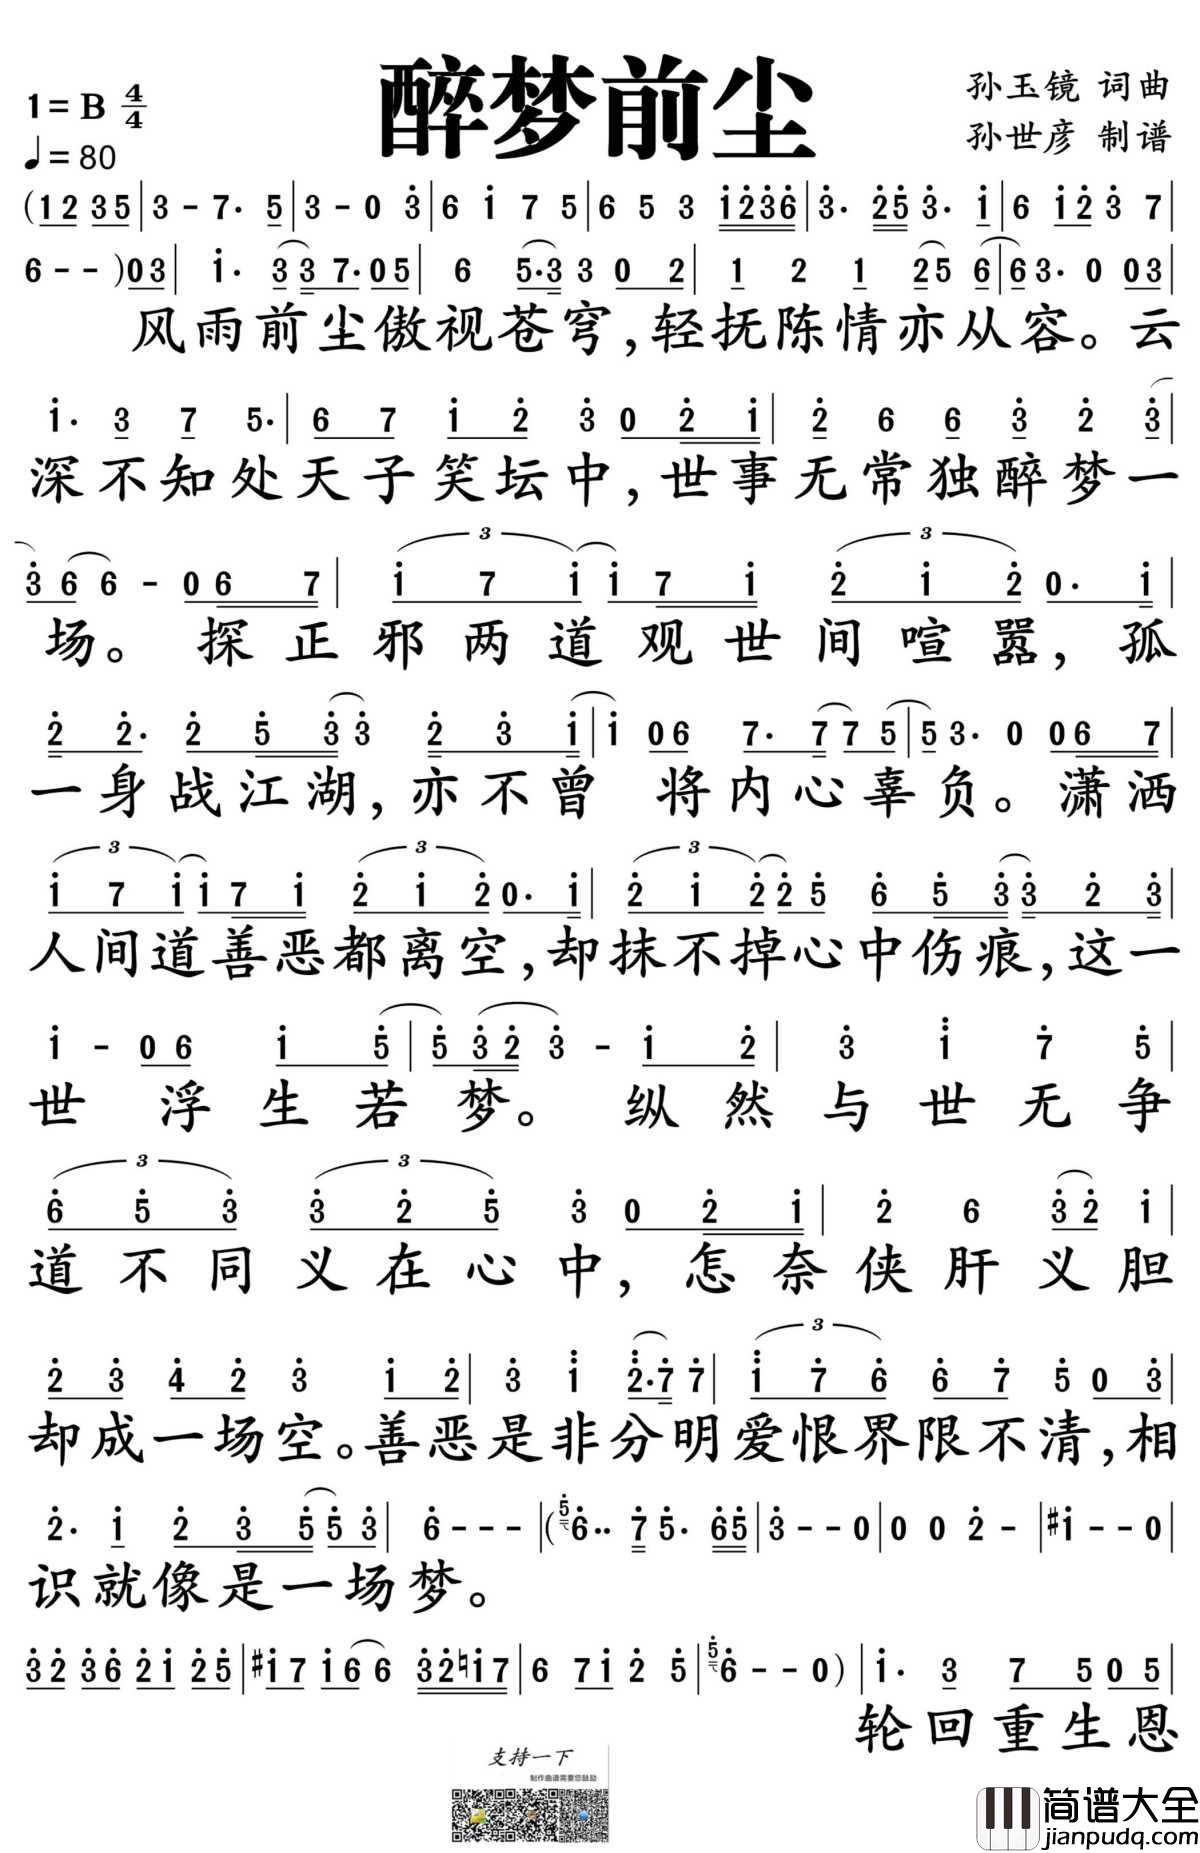 醉梦前尘
1=B 4/4
♩=80
孙玉镜 词曲
孙世彦 制谱
(12 35|3-7·5|3-03|6 1 7 5|6 5 3 1236|3·25 3·1|6 12 3 7|
6--)03|1·33 7·05|6 5·3 3 02|1 2 1 25 6|63·0 03|
风雨前尘傲视苍穹,轻抚陈情亦从容。云
1·3 7 5·|67 12 3 021|2 6 6 3 2 3|
深不知处天子笑坛中,世事无常独醉梦一
36 6-067|171 171 212 0·1|
场。探正邪两道观世间喧嚣,孤
2 2·2 5 3 3 2 3 1|1 06 7·7 7 5|5 3·0 067|
一身战江湖,亦不曾 将内心辜负。潇洒
171 171 212 0·1|212 25 653 3 2 3|
人间道善恶都离空,却抹不掉心中伤痕,这一
1-06 1 5|5 32 3-12|3 1 7 5|
世浮生若梦。纵然与世无争
653 325 3 021|2 6 32 1|
道不同义在心中,怎奈侠肝义胆
23 42 3 12|3 1 2·7 7|176 67 5 03|
却成一场空。善恶是非分明爱恨界限不清,相
2·1 2 3 5 53|6---|(5 6··7 5·65|3--0|0 0 2-|#1--0|
识就像是一场梦。
32 36 21 25|#17 16 6 32♮17|6 71 2 5|5 6--0)|1·3 75 05|
轮回重生恩
支持一下
制作曲谱需要您鼓励
简谱大全
jianpudq.com